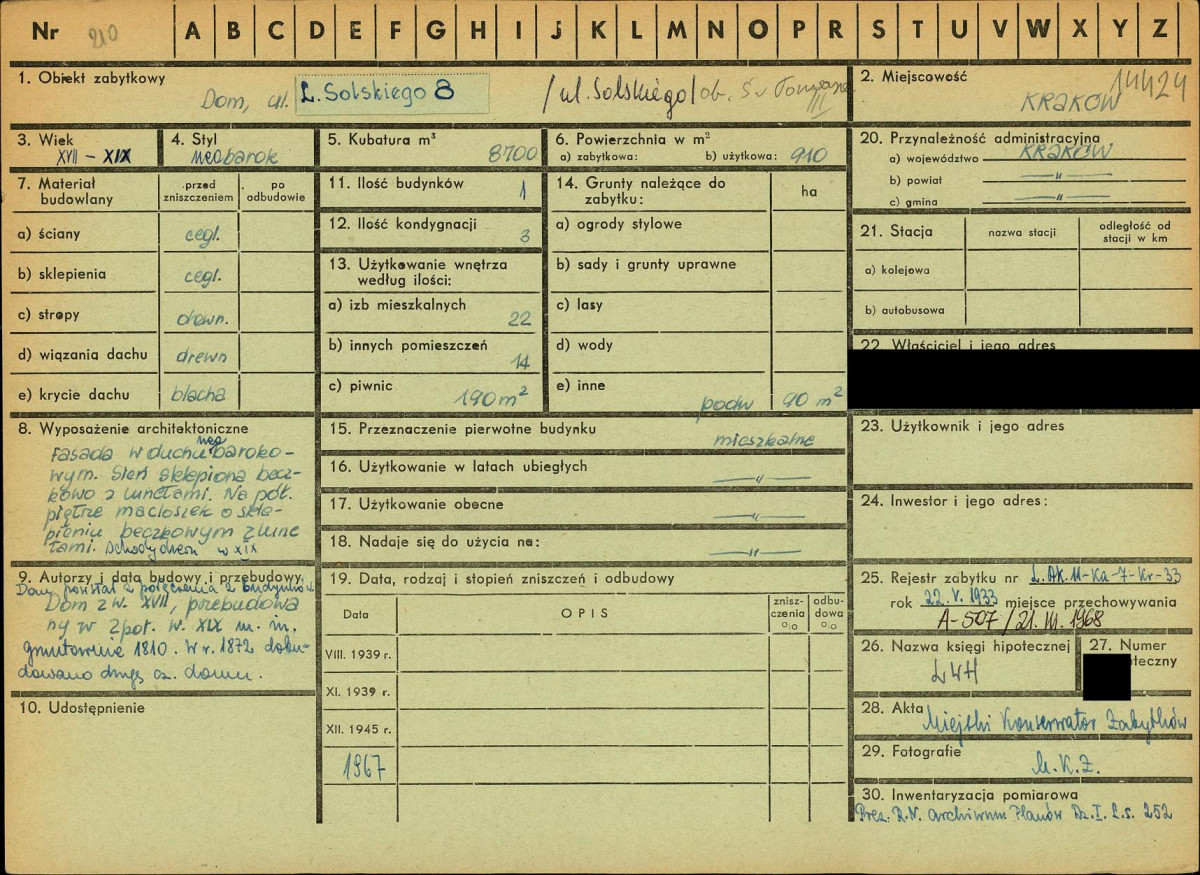 Nr 210 A B C D E F G H I J K L M N O P R S T U V W X Y Z
1. Obiekt zabytkowy
Dom, ul. L. Solskiego 8 /ul. Solskiego/ ob. Św Tomasza
2. Miejscowość
14424
KRAKÓW
3. Wiek
XVII – XIX
4. Styl
neobarok
5. Kubatura m³
8700
6. Powierzchnia w m²
a) zabytkowa: b) użytkowa: 910
20. Przynależność administracyjna
a) województwo KRAKÓW
b) powiat -"-
c) gmina -"-
7. Materiał budowlany
przed zniszczeniem
po odbudowie
a) ściany cegl.
b) sklepienia cegl.
c) stropy drewn.
d) wiązania dachu drewn
e) krycie dachu blacha
11. Ilość budynków
1
12. Ilość kondygnacji
3
13. Użytkowanie wnętrza
według ilości:
a) izb mieszkalnych
22
b) innych pomieszczeń
14
c) piwnic
190 m²
14. Grunty należące do
zabytku:
ha
a) ogrody stylowe
b) sady i grunty uprawne
c) lasy
d) wody
e) inne
podw 90 m²
21. Stacja
nazwa stacji
odległość od
stacji w km
a) kolejowa
b) autobusowa
22. Właściciel i jego adres
8. Wyposażenie architektoniczne
Fasada w duchu neobaroko-
wym. Sień sklepiona becz-
kowo z lunetami. Na pół.
piętrze
o skle-
pieniu beczkowym z lune
tami. Schody drewn w XIX
15. Przeznaczenie pierwotne budynku
mieszkalne
16. Użytkowanie w latach ubiegłych
-"-
17. Użytkowanie obecne
-"-
18. Nadaje się do użycia na:
-"-
23. Użytkownik i jego adres
24. Inwestor i jego adres:
9. Autorzy i data budowy i przebudowy
Dom powstał z połączenia 2 budynków.
Dom z w. XVII, przebudowa
ny w 2 poł. w. XIX m. in.
gruntownie 1810. W r. 1872 dobu-
dowano drugą cz. domu.
10. Udostępnienie
19. Data, rodzaj i stopień zniszczeń i odbudowy
Data
OPIS
znisz-
czenia
%
odbu-
dowa
%
VIII. 1939 r.
XI. 1939 r.
XII. 1945 r.
1967
25. Rejestr zabytku nr L.Ak.11-Ka-7-Kr-33
rok 22.V.1933 miejsce przechowywania
A-507/21.III.1968
26. Nazwa księgi hipotecznej
LWH
27. Numer
teczny
28. Akta
Miejski Konserwator Zabytków
29. Fotografie
M.K.Z.
30. Inwentaryzacja pomiarowa
Prez. R.N. Archiwum Planów Dz.I. L.s. 252